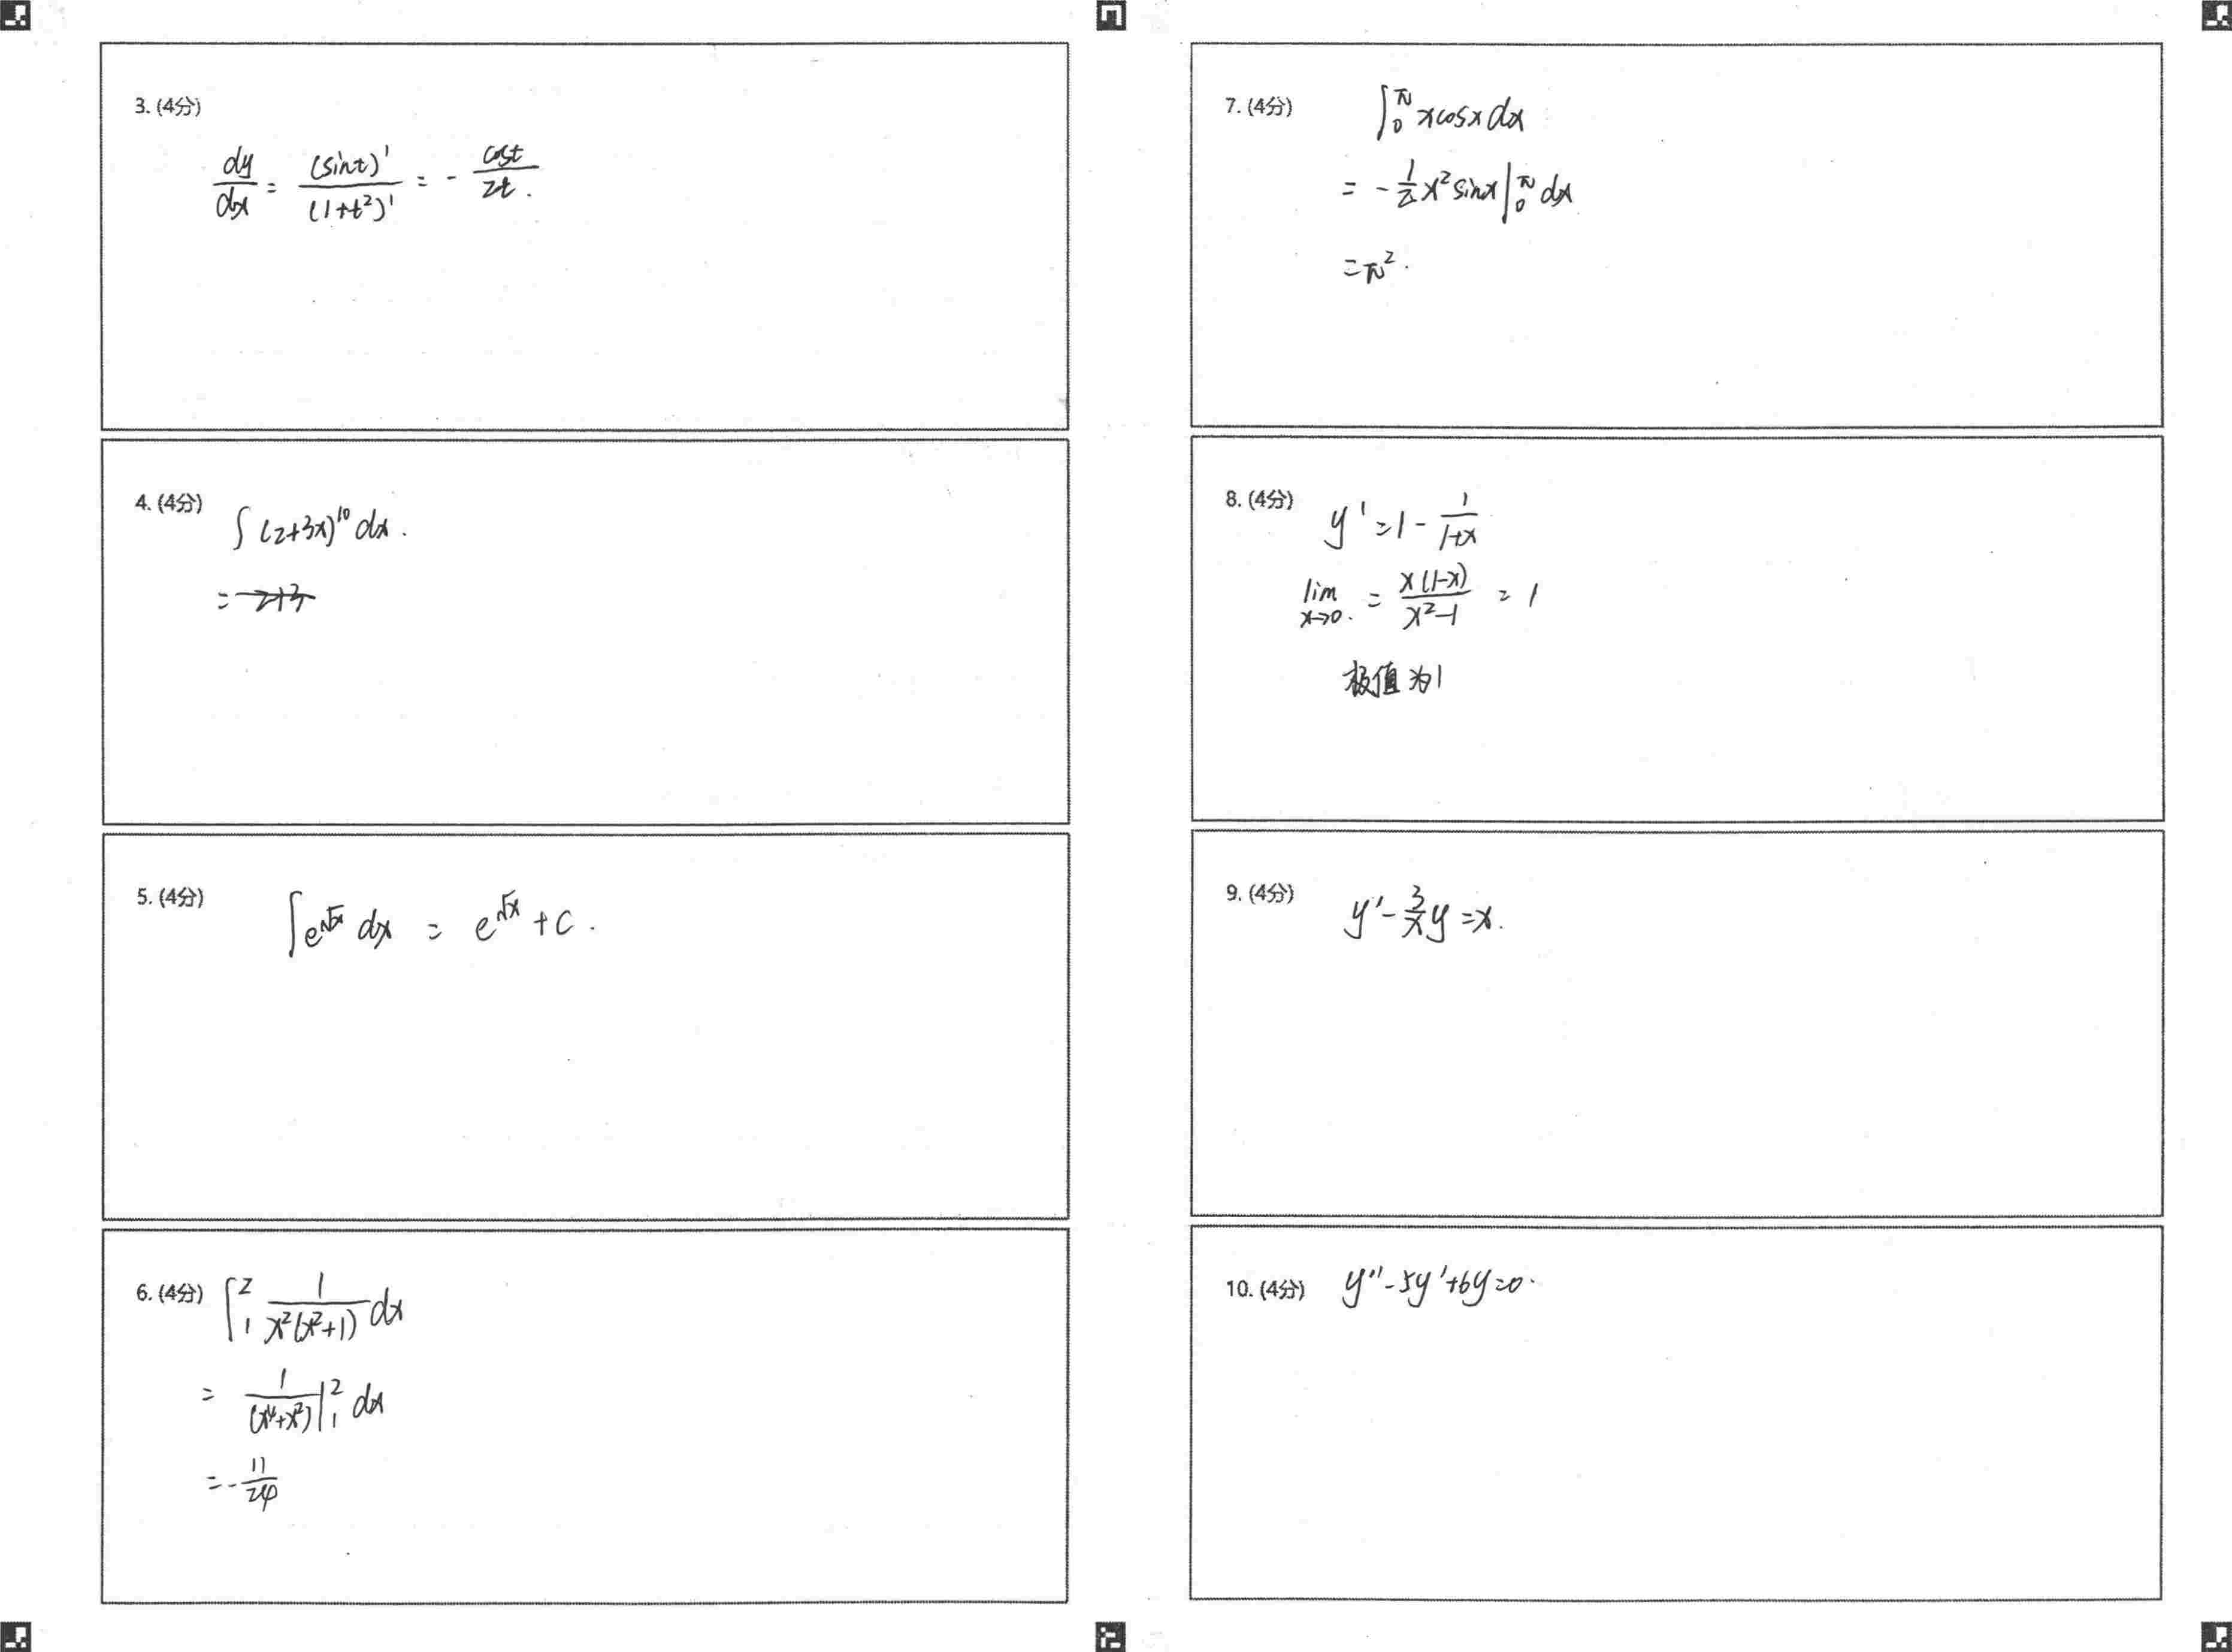 3. (4分)
dy/dx = (sint)'/(1+t²)' = - cost/2t.
4. (4分)
∫(2+3x)¹⁰ dx.
=
5. (4分)
∫e^√x dx = e^√x + C.
6. (4分)
∫₁² 1/(x²(x²+1)) dx
= 1/(x⁴+x²) |₁² dx
= - 11/24
7. (4分)
∫₀^π xcosx dx
= - 1/2 x² sinx |₀^π dx
= π².
8. (4分)
y' = 1 - 1/(1+x)
lim x→0. = x(1-x)/(x²-1) = 1
极值为1
9. (4分)
y' - 3/x y = x.
10. (4分)
y'' - 5y' + 6y = 0.